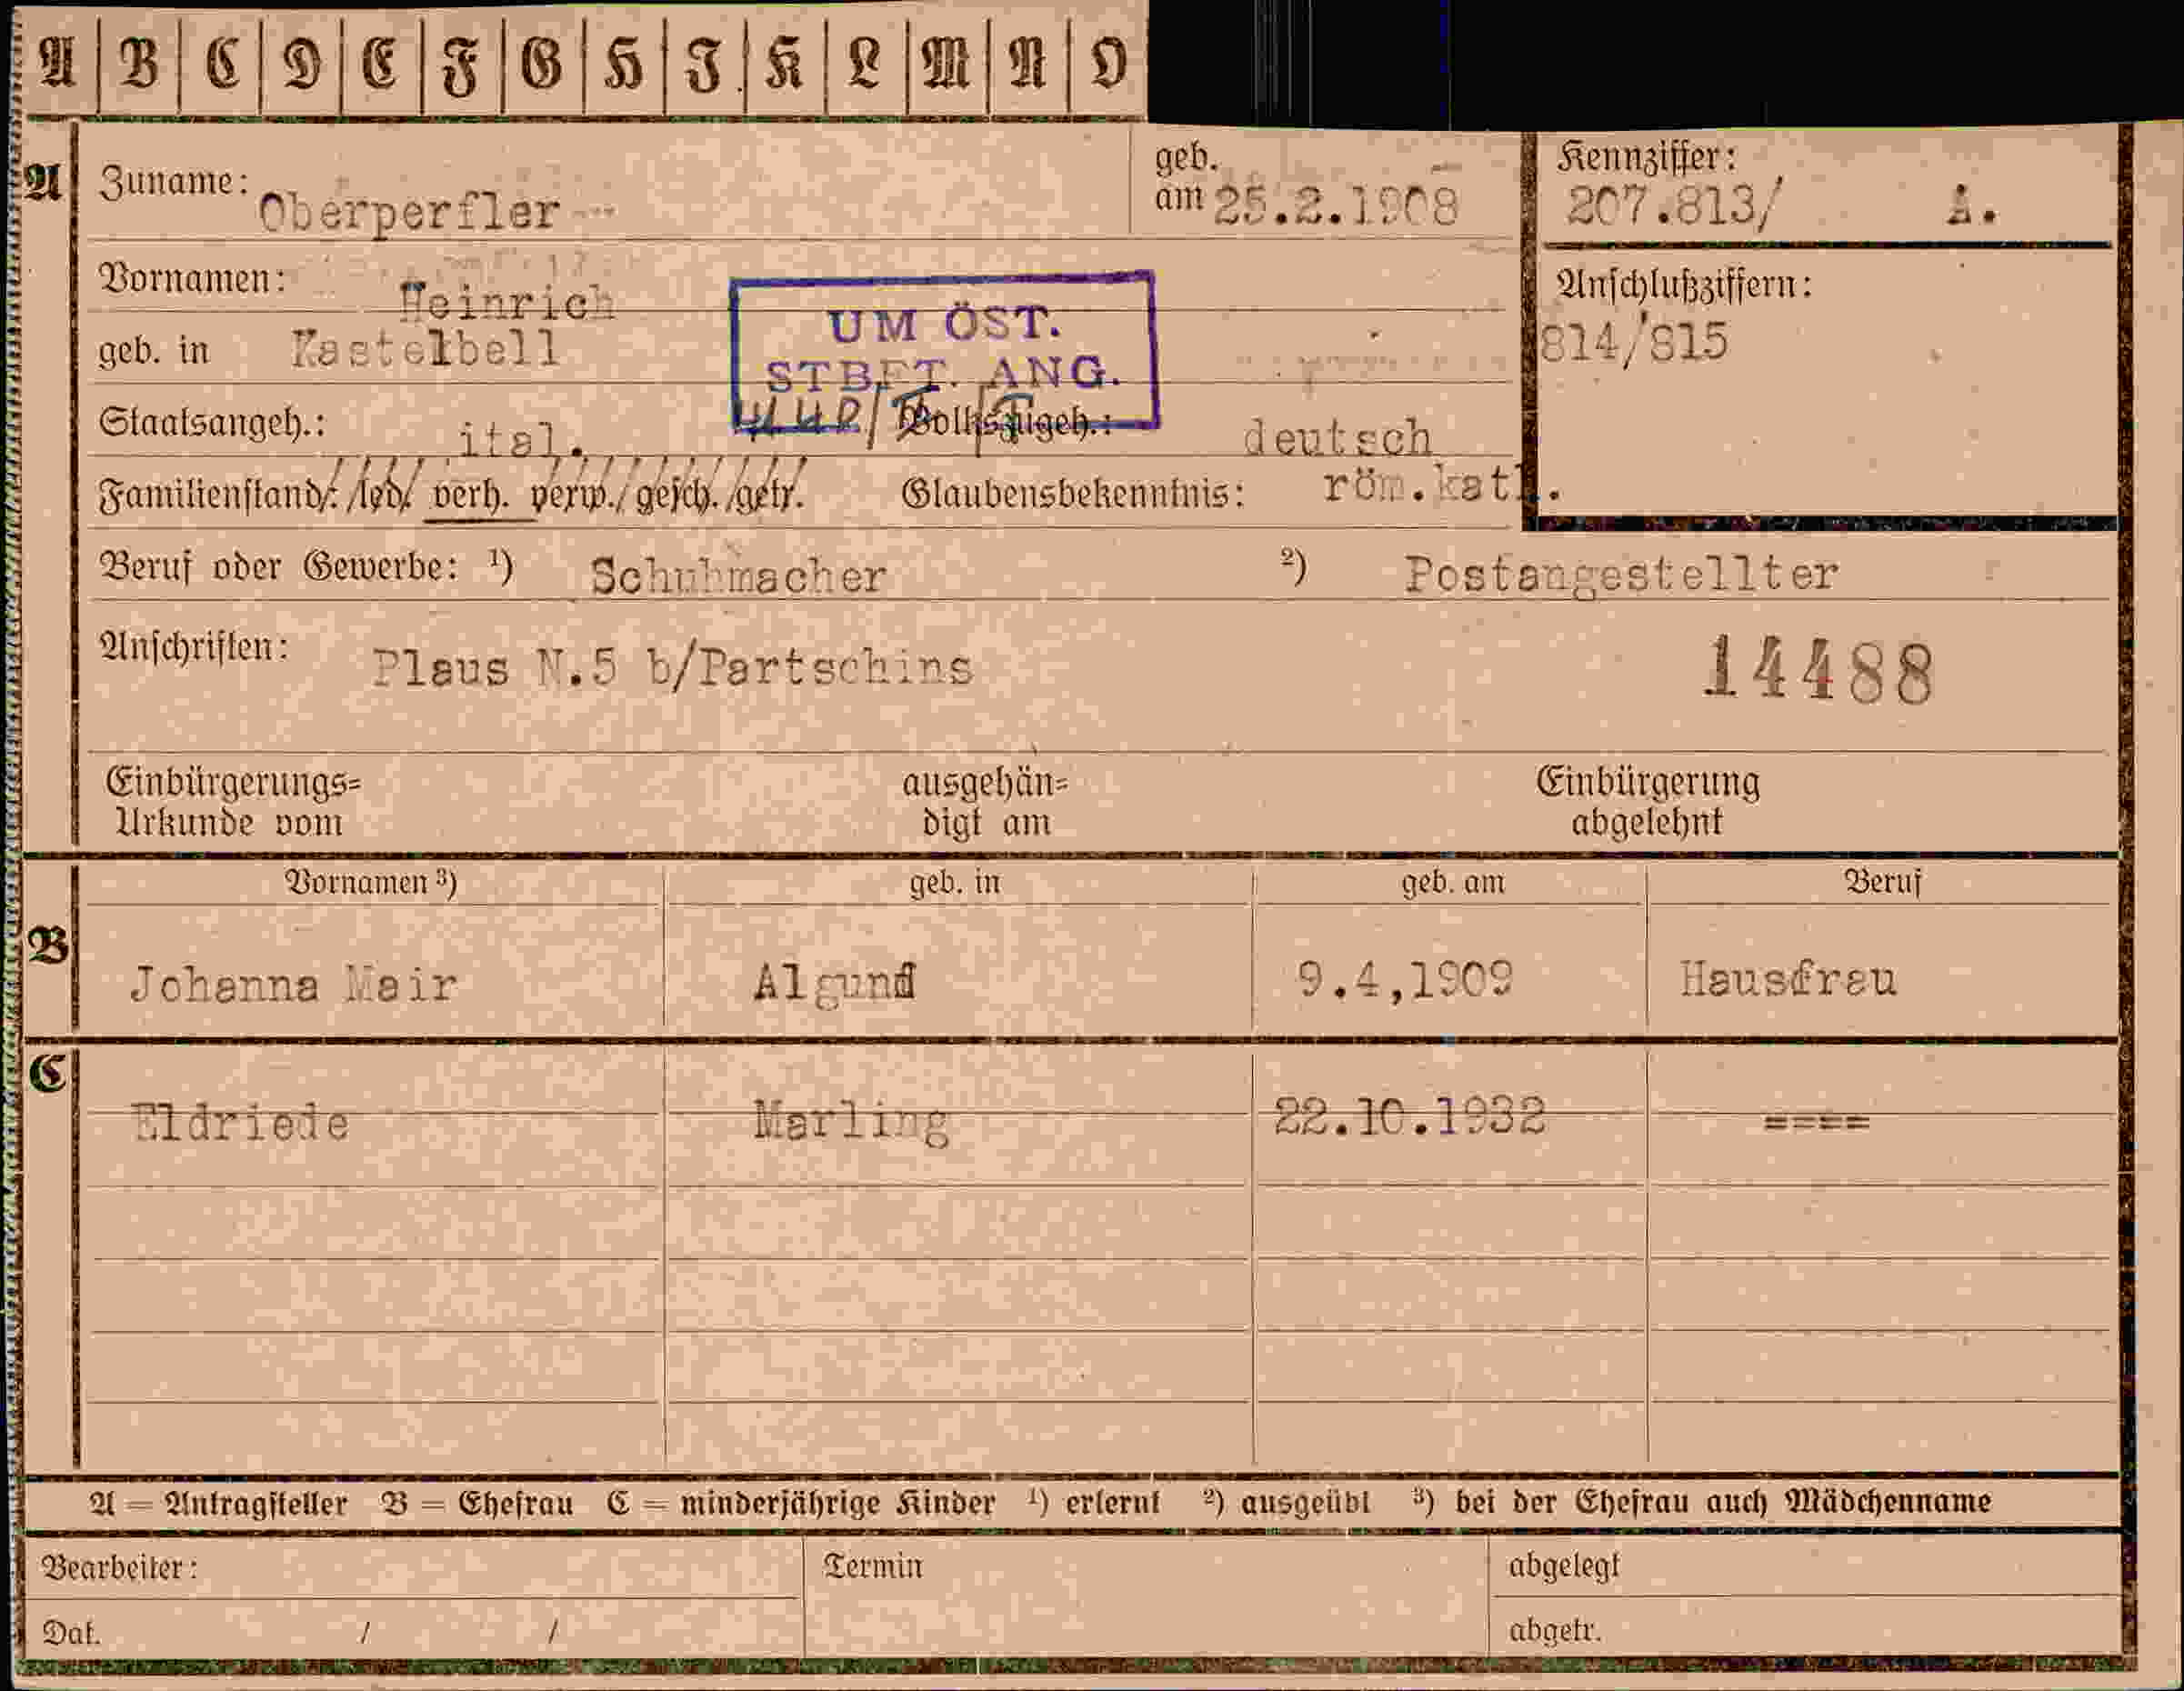 A B C D E F G H I K L M N O
A Zuname: Oberperfler geb. am 25.2.1908 Kennziffer: 207.813/ A.
Vornamen: Heinrich
UM ÖST. STBFT. ANG.
Anschlußziffern: 814/815
geb. in Kastelbell
Staatsangeh.: ital. Volkszugeh.: deutsch
Familienstand: led. verh. verw. gesch. getr. Glaubensbekenntnis: röm.kath.
Beruf oder Gewerbe: 1) Schuhmacher 2) Postangestellter
Anschriften: Plaus N.5 b/Partschins 14488
Einbürgerungs= ausgehän= Einbürgerung
Urkunde vom digt am abgelehnt
Vornamen 3) geb. in geb. am Beruf
B Johanna Mair Algund 9.4,1909 Hausfrau
C Eldriede Marling 22.10.1932 ====
A = Antragsteller B = Ehefrau C = minderjährige Kinder 1) erlernt 2) ausgeübt 3) bei der Ehefrau auch Mädchenname
Bearbeiter: Termin abgelegt
Dat. / / abgetr.